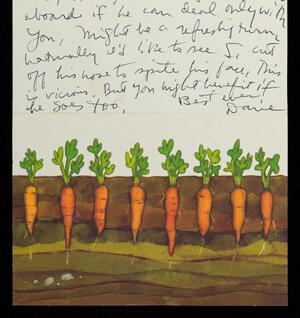 aboard if he can deal only with
you, Might be a refreshing turn,
naturaley I'd like to see J, cut
off his nose to spite his face, This
is vicious. But you might benefit if
he goes too, Best ever
Dane